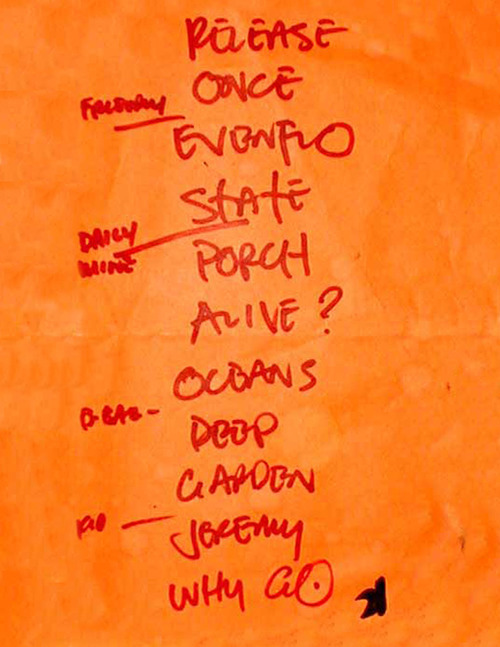 RELEASE
ONCE
EVENFLO
STATE
DAILY
MINE
PORCH
ALIVE ?
OCEANS
B-EAZ-
DEEP
GARDEN
JEREMY
WHY GO